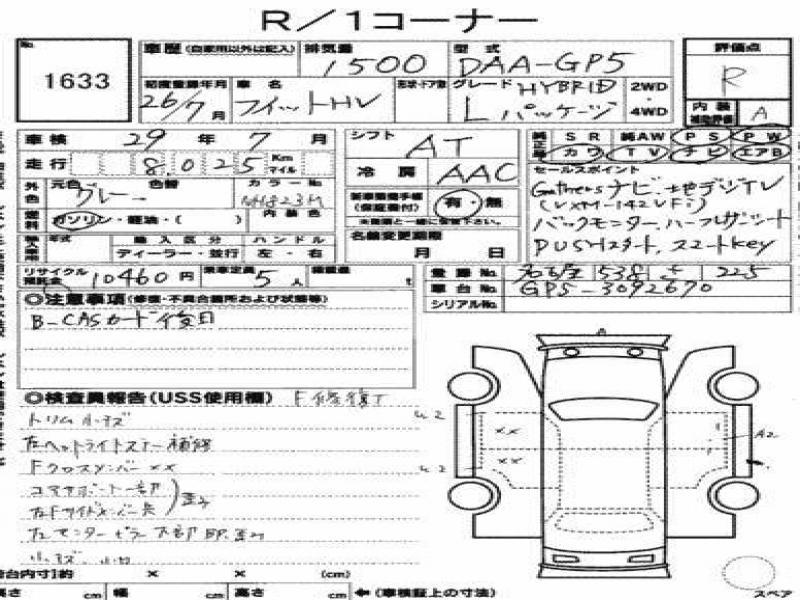 R/1コーナー
No. 1633
車歴 (自家用以外は記入) 排気量 1500 型式 DAA-GP5 評価点 R
初度登録年月 26/7月 車名 フィットHV 形状・ドア数 グレード HYBRID Lパッケージ 2WD・4WD 内装補助評価 A
車検 29年7月 シフト AT 純正 SR 純AW PS PW
走行 8,025 Km マイル 冷房 AAC カワ TV ナビ エアB
外色 元色 グレー 色替 カラーNo. NH823M 新車整備手帳(保証書付) 有・無 セールスポイント
燃料 ガソリン・軽油・( ) 内装色 Gathersナビ・地デジTV
輸入車 年式 輸入区分 ハンドル 名義変更期限 (VXM-142VFi)
ディーラー・並行 左・右 月 日 バックモニター、ハーフレザーシート
PUSHスタート、スマートkey
リサイクル預託金 10460円 乗車定員 5人 積載量 t 登録No. 名古屋 538 さ 225
車台No. GP5-3092670
シリアルNo.
◎注意事項(修復・不具合箇所および状態等)
B-CASカード後日
◎検査員報告(USS使用欄) F修復了
トリム小キズ
左ヘッドライトステー補修
Fクロスメンバー××
コアサポート一部
左Fサイドメンバー先 歪み
左センターピラー下部 凹、歪み
小キズ、小凹
A
U2
××
A2
××
U2
荷台内寸1約 × × (cm)
高さ cm 幅 cm 高さ cm ←(車検証上の寸法)
スペア